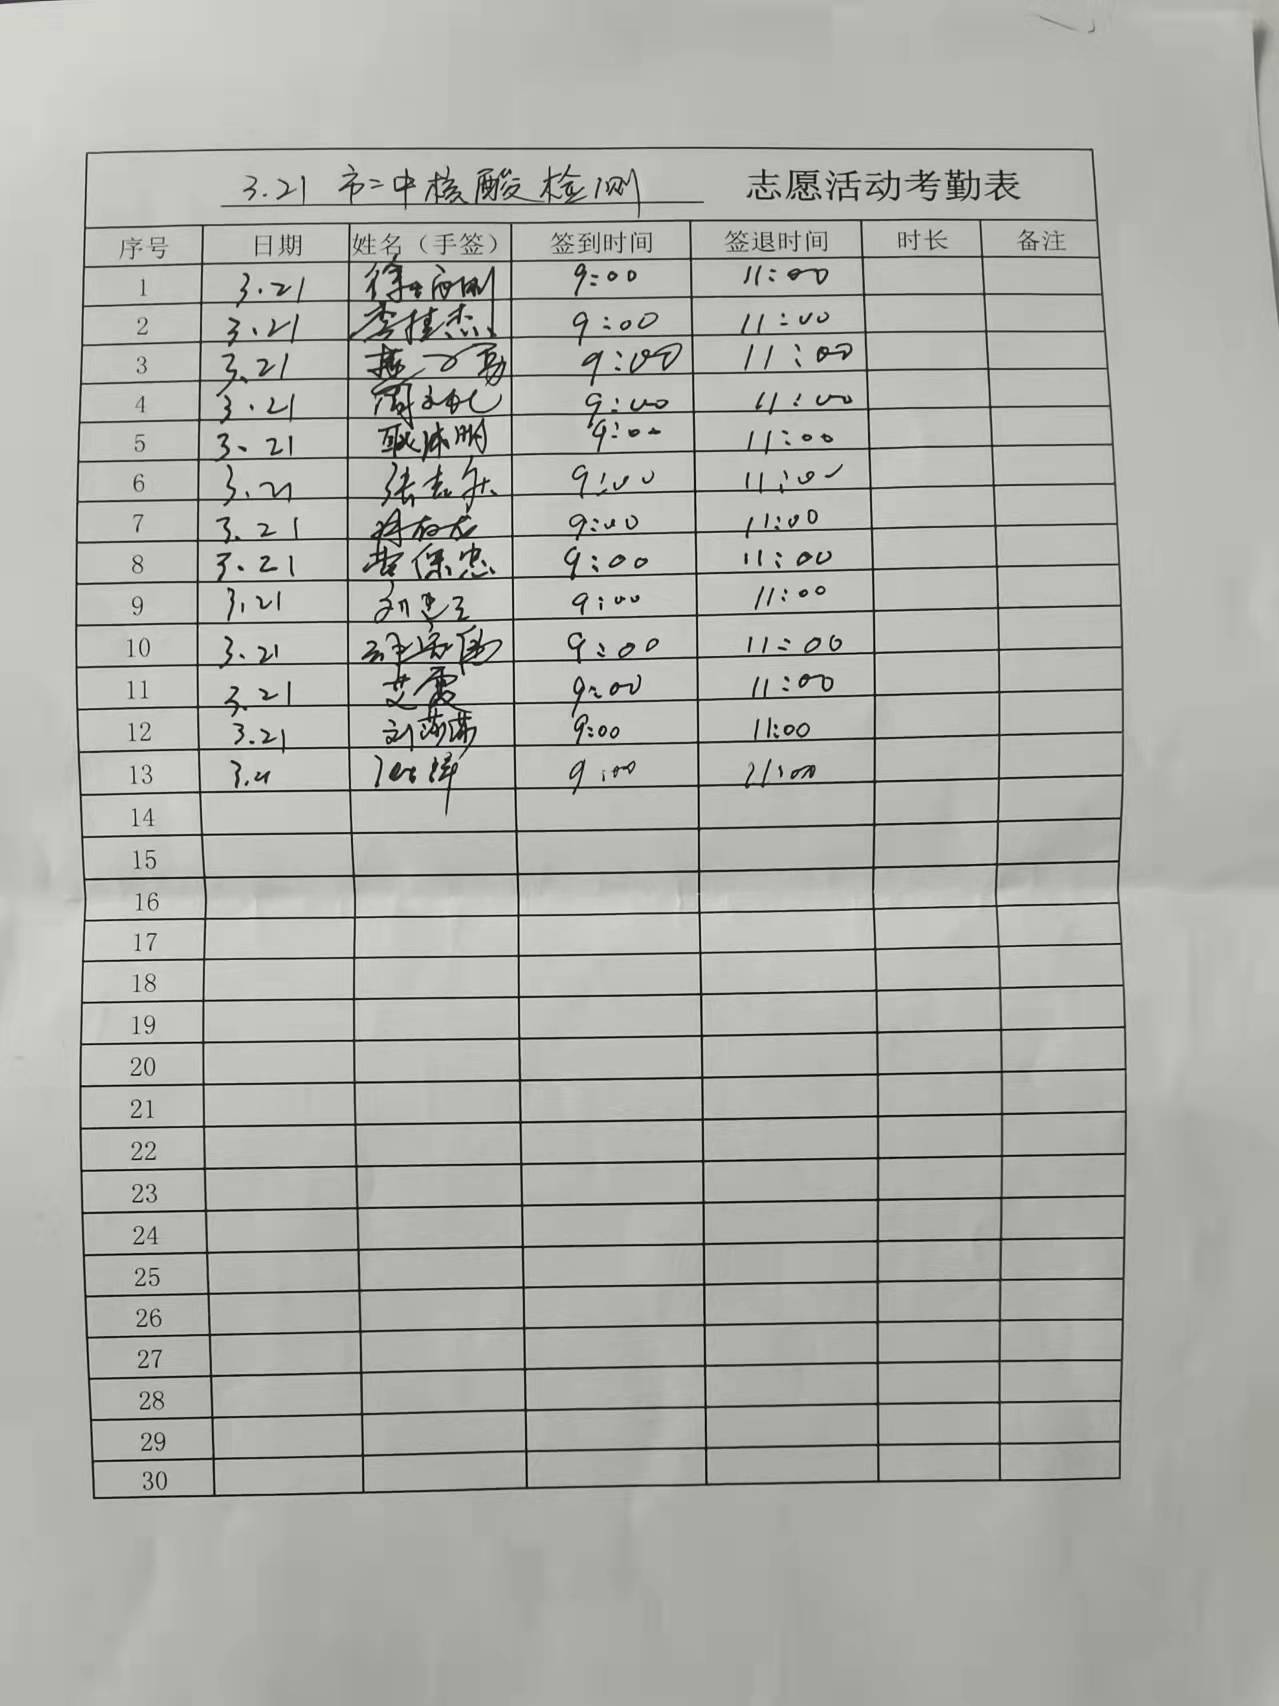 3.21 市二中核酸检测 志愿活动考勤表
序号 日期 姓名（手签） 签到时间 签退时间 时长 备注
1 3.21 9:00 11:00
2 3.21 李桂杰 9:00 11:00
3 3.21 9:00 11:00
4 3.21 9:00 11:00
5 3.21 9:00 11:00
6 3.21 9:00 11:00
7 3.21 9:00 11:00
8 3.21 保忠 9:00 11:00
9 3.21 9:00 11:00
10 3.21 9:00 11:00
11 3.21 艾震 9:00 11:00
12 3.21 刘莎莎 9:00 11:00
13 3.21 9:00 11:00
14
15
16
17
18
19
20
21
22
23
24
25
26
27
28
29
30